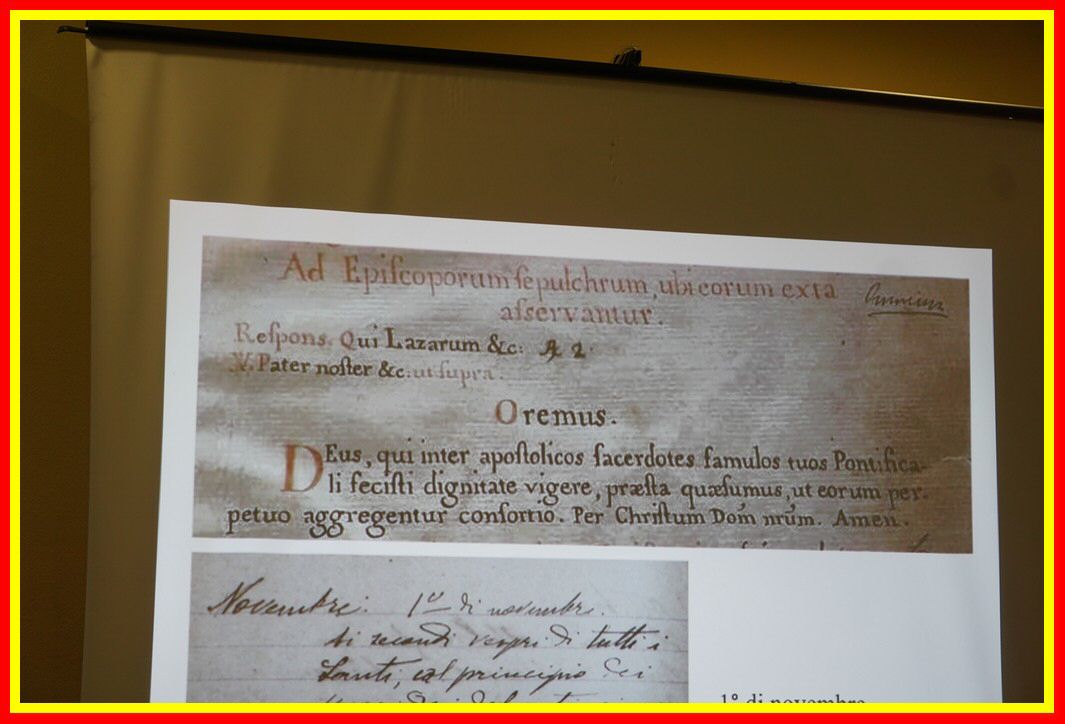 Ad Epiſcoporum ſepulchrum, ubi eorum exta
aſservantur.
Reſpons. Qui Lazarum &c. 2.
V. Pater noſter &c. ut ſupra.
Oremus.
DEus, qui inter apoſtolicos ſacerdotes famulos tuos Pontifica-
li feciſti dignitate vigere, præſta quæſumus, ut eorum per-
petuo aggregentur conſortio. Per Chriſtum Dom̃ nrũm. Amen.
Novembre: 1º di novembre.
Ai secondi vespri di tutti i
Santi, col principio dei
1° di novembre